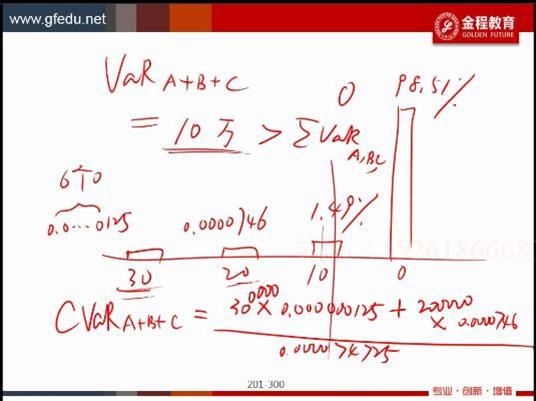 www.gfedu.net
金程教育
GOLDEN FUTURE
VaR A+B+C
= 10万 > ΣVaR A,B,C
0
98.51%
6个0
0.0...0125
0.0000746
1.49%
30 20 10 0
CVaR A+B+C = 300000 × 0.000000125 + 200000 × 0.0000746
201-300
专业·创新·增值